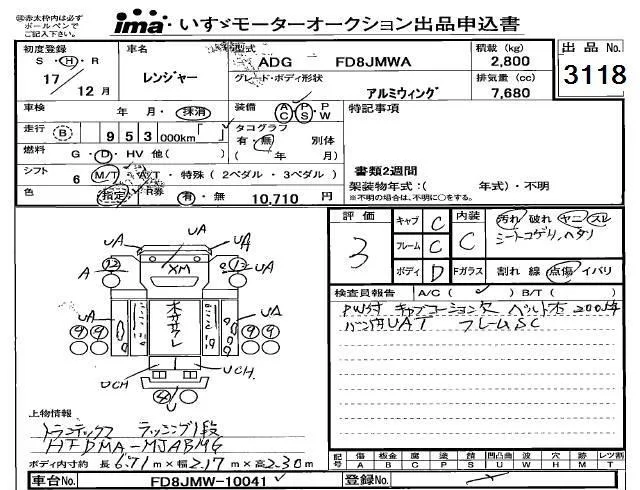 ※赤太枠内は必ず
ボールペンで
ご記入下さい。
ima いすゞモーターオークション出品申込書
初度登録 車名 型式 積載 (kg) 出品No.
S・H・R レンジャー ADG FD8JMWA 2,800 3118
17 12月 グレード・ボディ形状 排気量 (cc)
アルミウィング 7,680
車検 年・月・抹消 装備 A/C P/S・P/W 特記事項
走行 B 953 000km「 」 タコグラフ
有・無 別体
燃料 G・D・HV 他( ) ( 年 月) 書類2週間
シフト 6 M/T・A/T・特殊(2ペダル・3ペダル) 架装物年式:( 年式)・不明
※不明の場合は、不明に○をする。
色 指定 R券 有・無 10,710 円
評価 3 キャブ C 内装 C 汚れ 破れ ヤニ スレ
フレーム C シートコゲリ、ヘタリ
ボディ D Fガラス 割れ 線 点傷 イバリ
検査員報告 A/C( ) B/T( )
PW付 キャブコーション欠
UAT フレームSC
UA UA UA
A 12 XM 12 A
UA UA
9 9 9 9
UCH UCH
上物情報
トランテックス ラッシング1段
HFDMA-MJABMG
ボディ内寸約 長6.71m×幅2.17m×高2.30m
記号 傷 A 板金 B 腐 C 塗 P 錆 S 凹凸曲 U 波 W 穴 H ム M 欠 T レツ割 R
車台No. FD8JMW-10041 登録No.